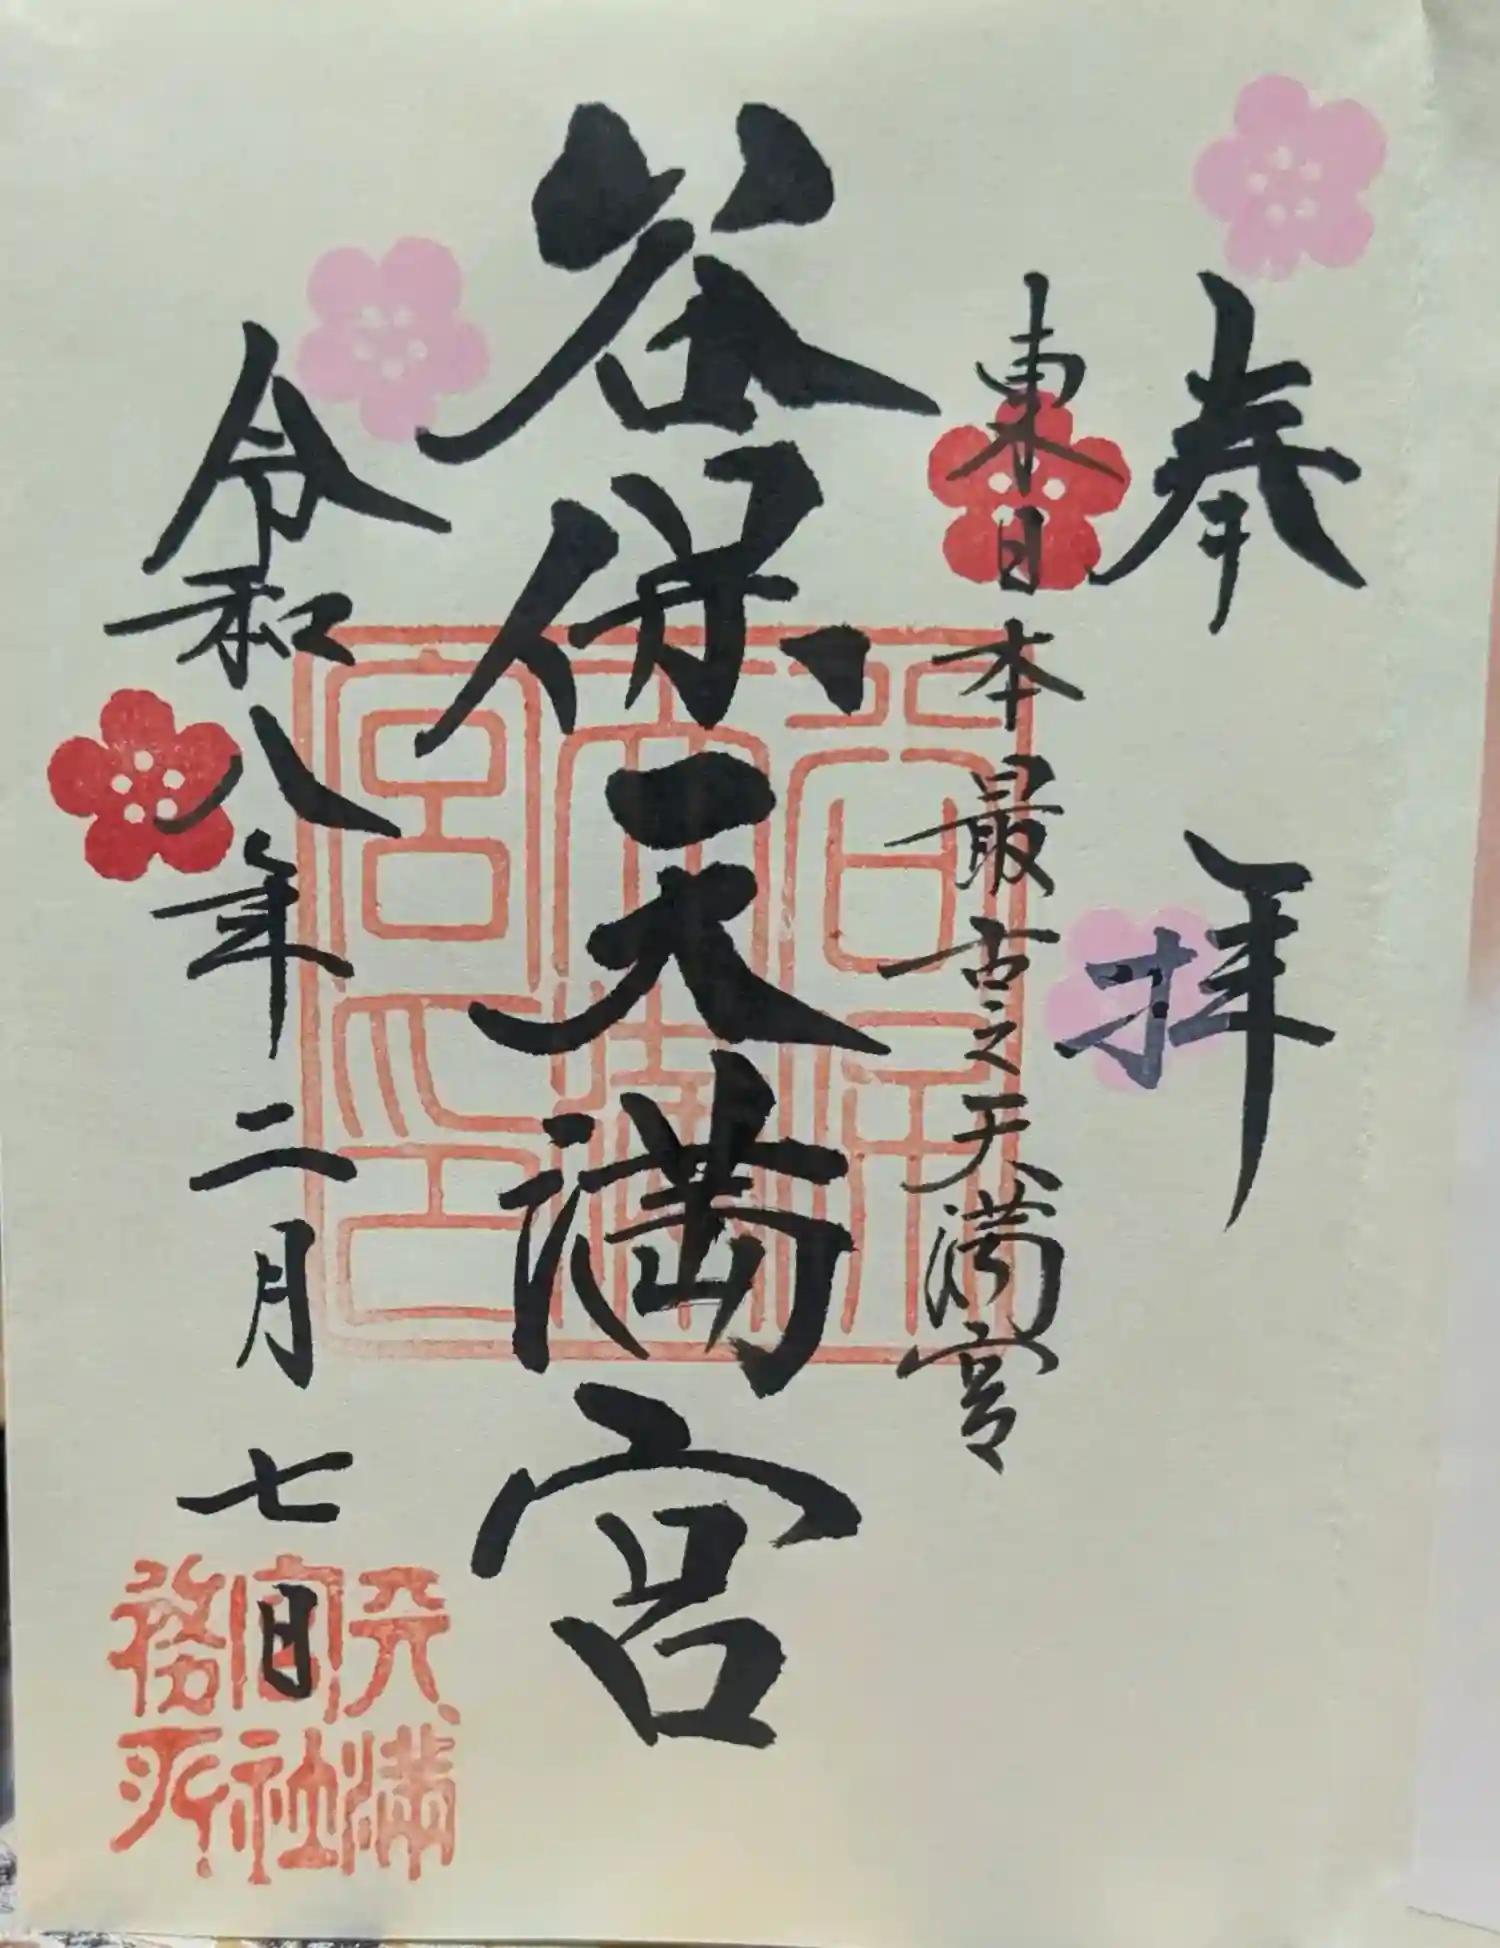 奉拝
東日本最古之天満宮
谷保天満宮
令和八年二月七日
谷保天満宮印
天満宮社務所